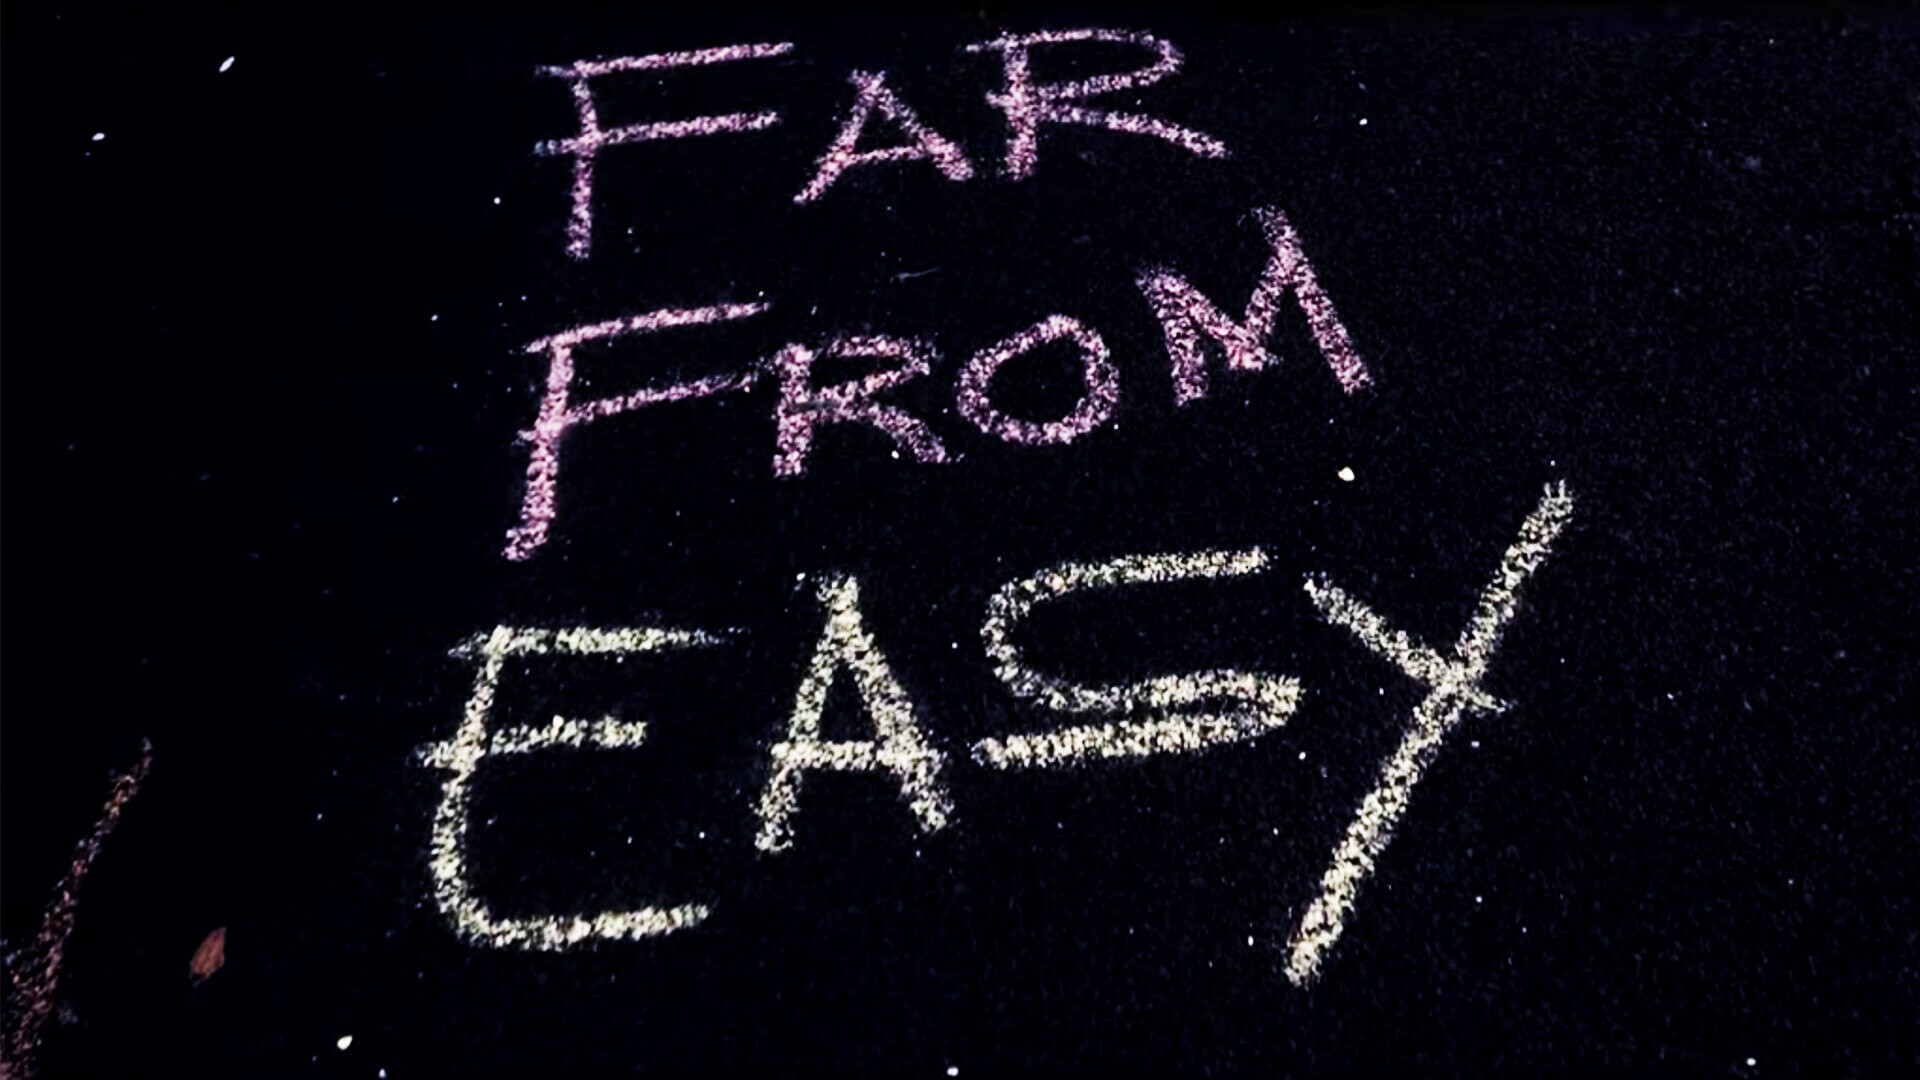 FAR
FROM
EASY